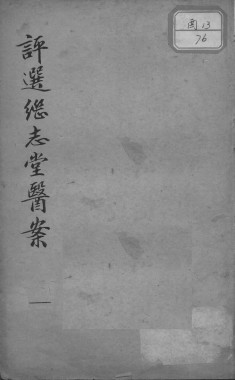 評選继志堂醫案
一
圕13
76